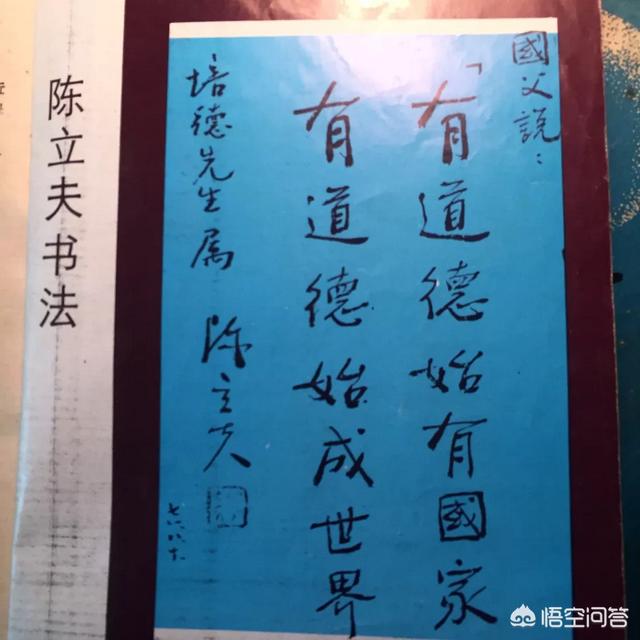 陈立夫书法
國父説：
「有道德始有國家
有道德始成世界
培德先生属
陈立夫
七六、八、十
悟空问答